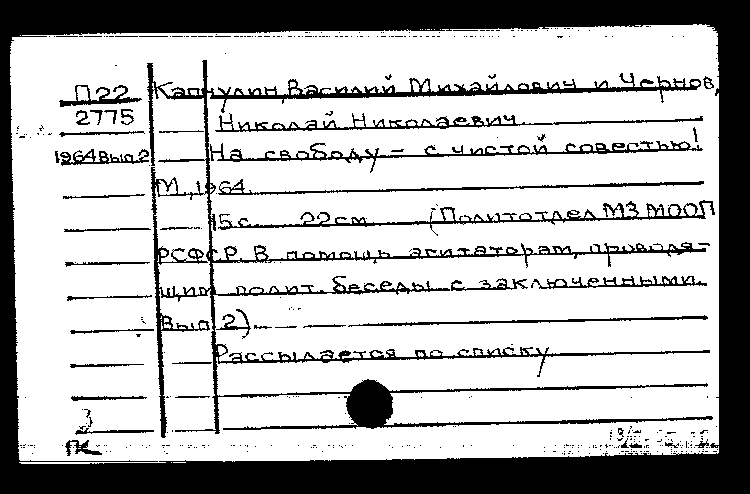 П22 Капчулин, Василий Михайлович и Чернов,
2775 Николай Николаевич
1964 Вып.2 На свободу – с чистой совестью!
М., 1964.
15 с. 22 см. (Политотдел МЗ МООП
РСФСР. В помощь агитаторам, проводя-
щим полит. беседы с заключенными.
Вып. 2).
Рассылается по списку
3
ПК